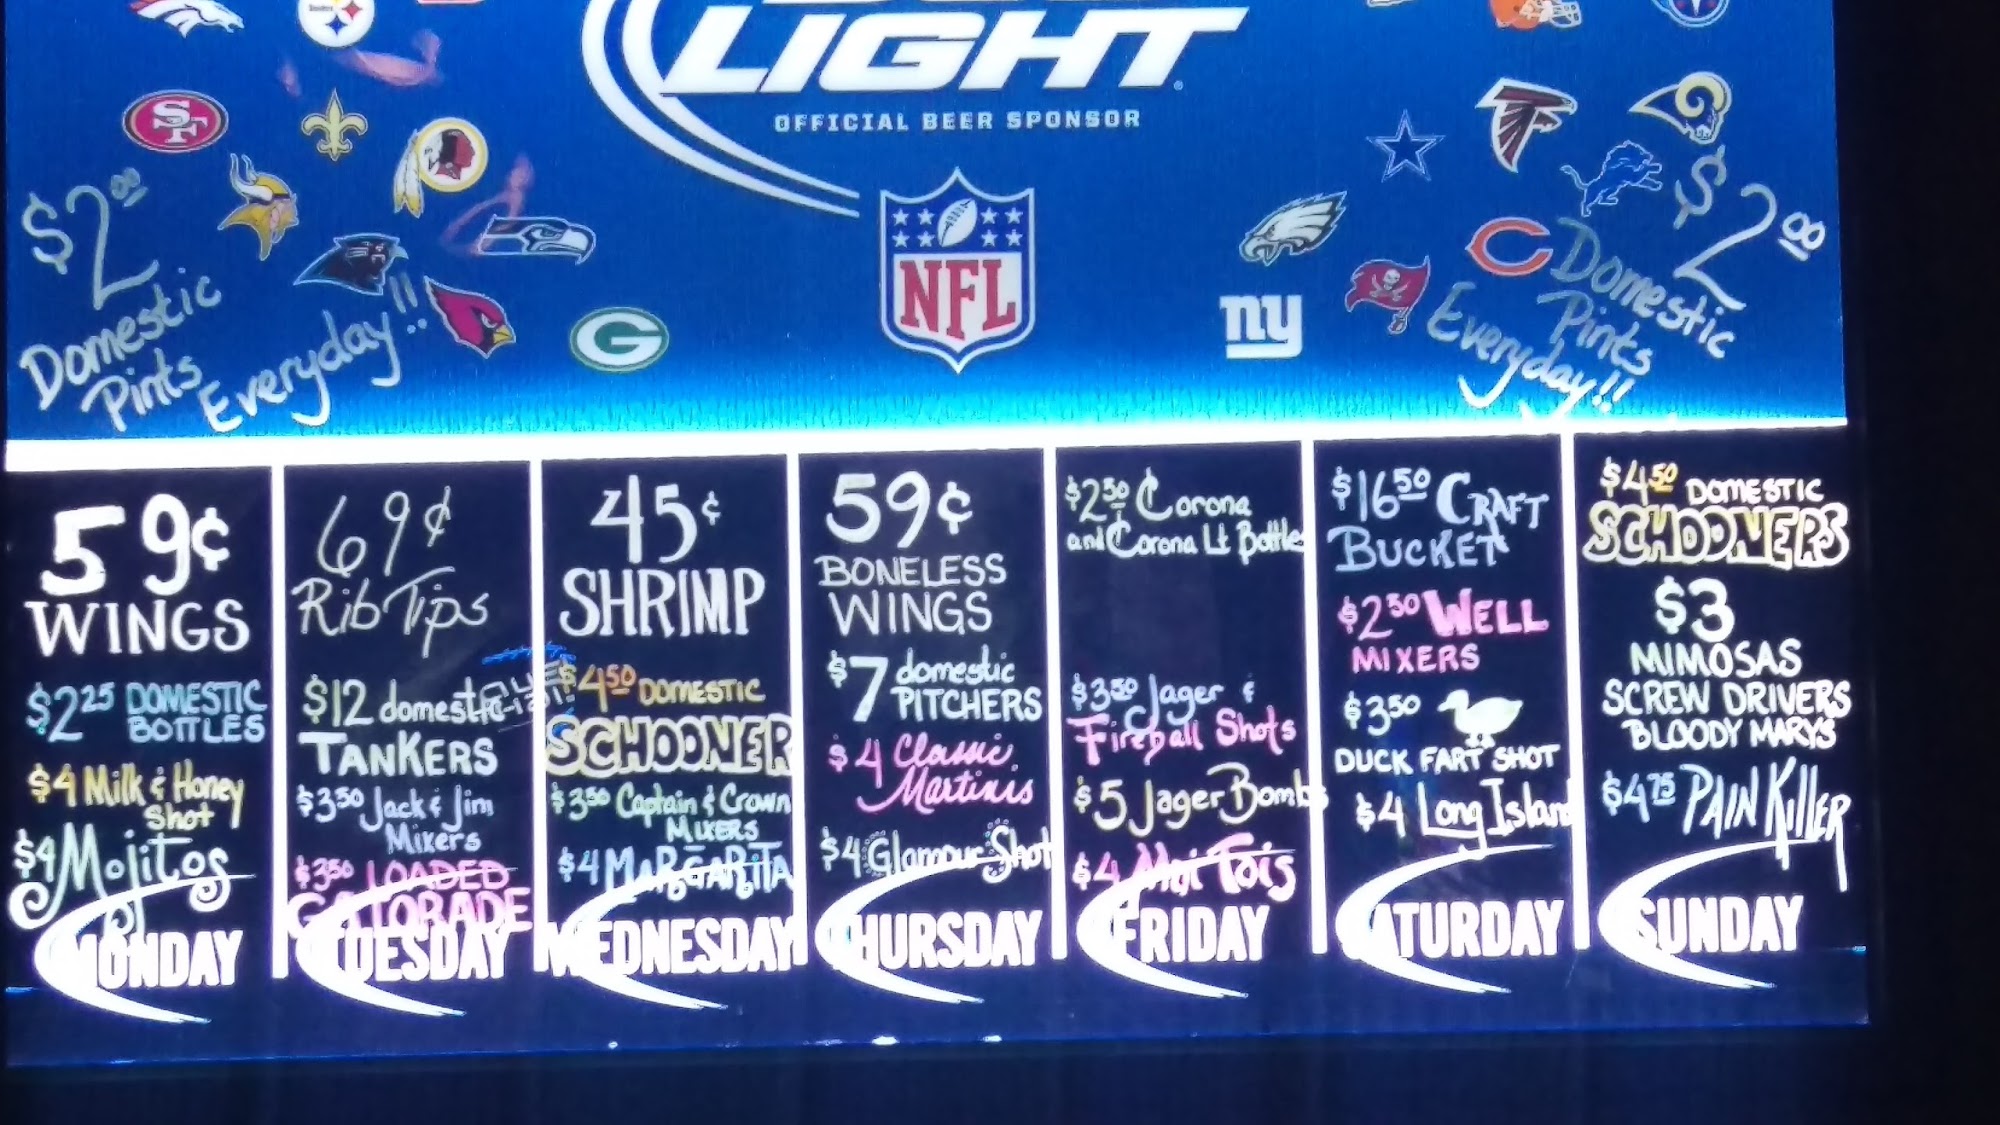 LIGHT
OFFICIAL BEER SPONSOR
Steelers
SF
NFL
G
ny
C
$2.00
Domestic
Pints
Everyday!!
$2.00
Domestic
Pints
Everyday!!
59¢
WINGS
$2.25 DOMESTIC
BOTTLES
$4 Milk & Honey
Shot
$4 Mojitos
MONDAY
69¢
Rib Tips
$12 domestic
TANKERS
$3.50 Jack & Jim
Mixers
$3.50 LOADED
GATORADE
TUESDAY
45¢
SHRIMP
$4.50 DOMESTIC
SCHOONER
$3.50 Captain & Crown
MIXERS
$4 MARGARITA
WEDNESDAY
59¢
BONELESS
WINGS
$7 domestic
PITCHERS
$4 Classic
Martinis
$4 Glamour Shot
THURSDAY
$2.50 Corona
and Corona Lt Bottle
$3.50 Jager &
Fireball Shots
$5 Jager Bombs
$4 Mai Tais
FRIDAY
$16.50 CRAFT
BUCKET
$2.50 WELL
MIXERS
$3.50
DUCK FART SHOT
$4 Long Island
SATURDAY
$4.50 DOMESTIC
SCHOONERS
$3
MIMOSAS
SCREW DRIVERS
BLOODY MARYS
$4.75 PAIN KILLER
SUNDAY